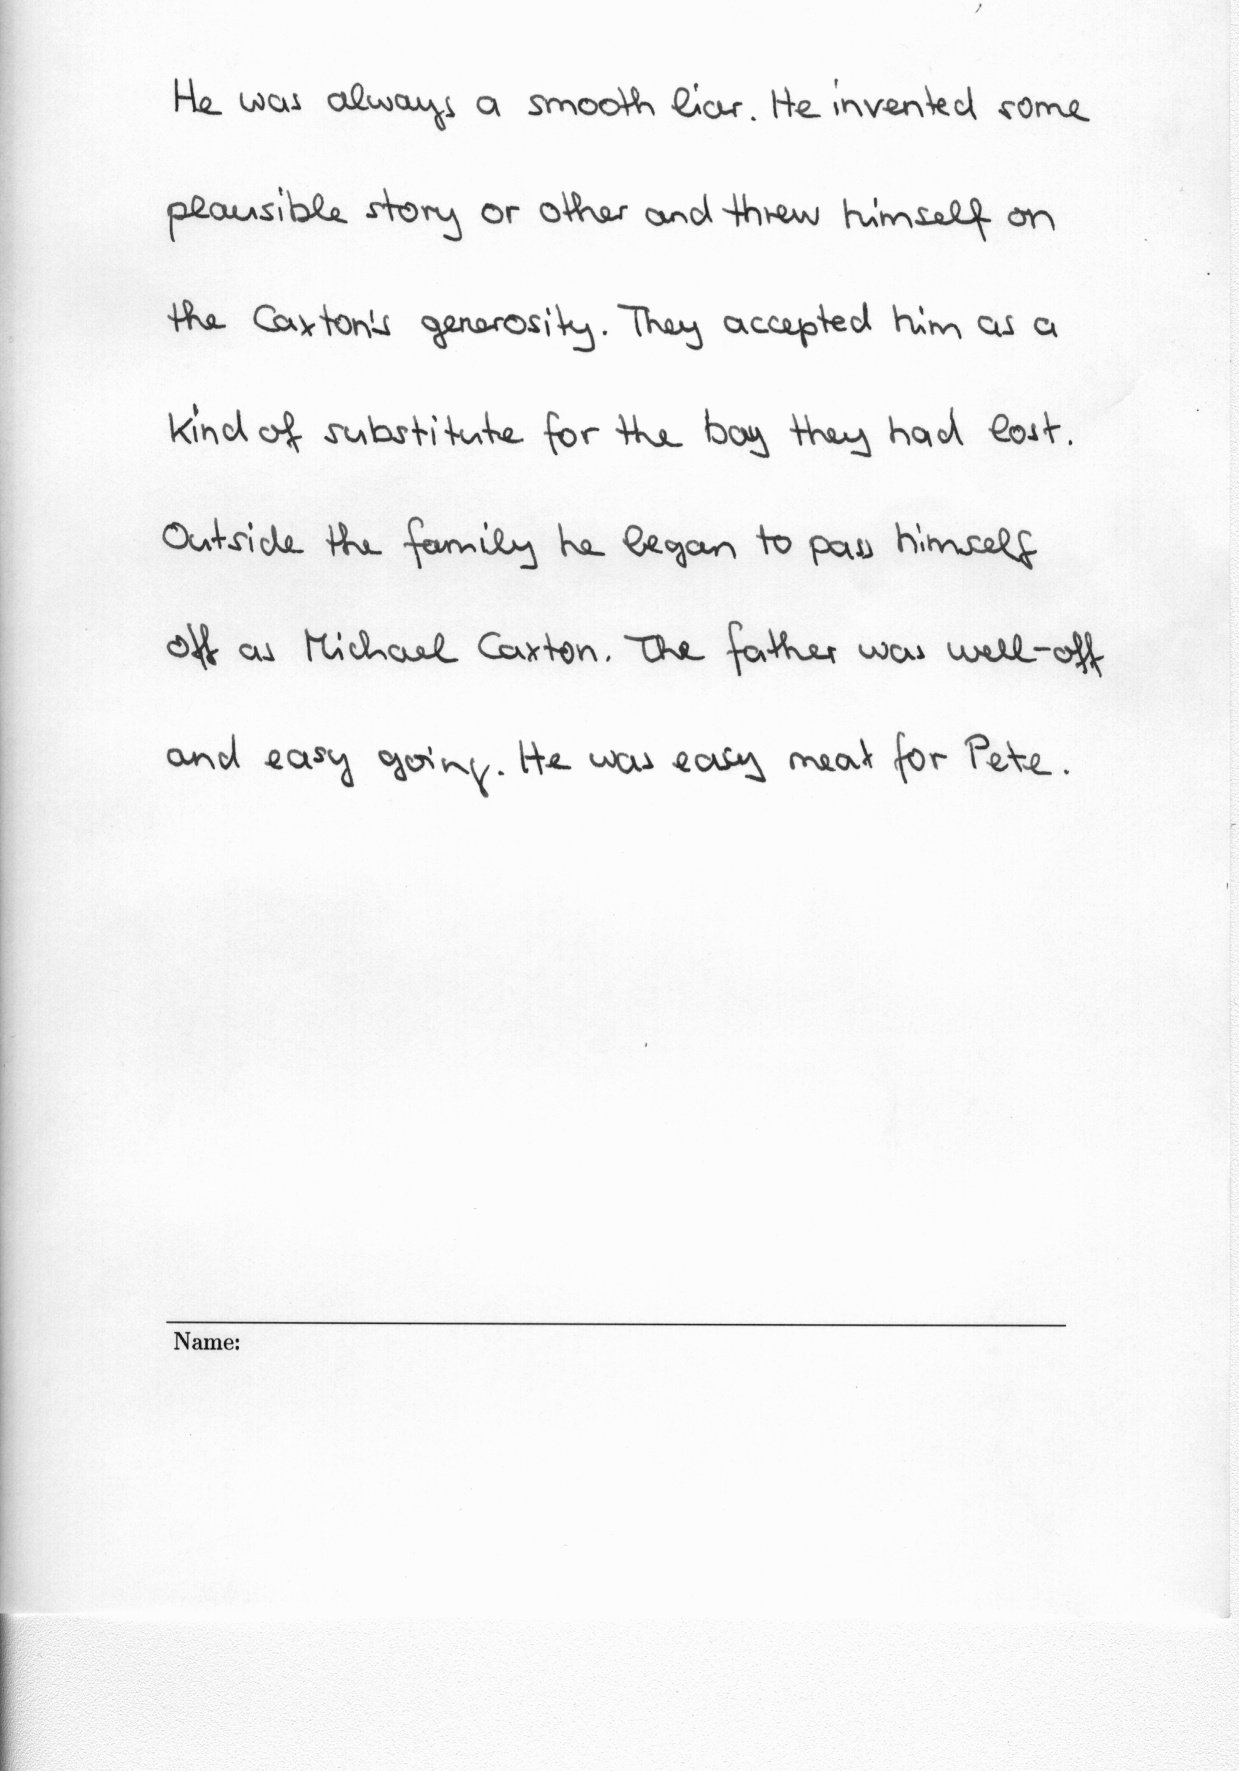 He was always a smooth liar. He invented some
plausible story or other and threw himself on
the Caxton's generosity. They accepted him as a
kind of substitute for the boy they had lost.
Outside the family he began to pass himself
off as Michael Caxton. The father was well-off
and easy going. He was easy meat for Pete.
Name: